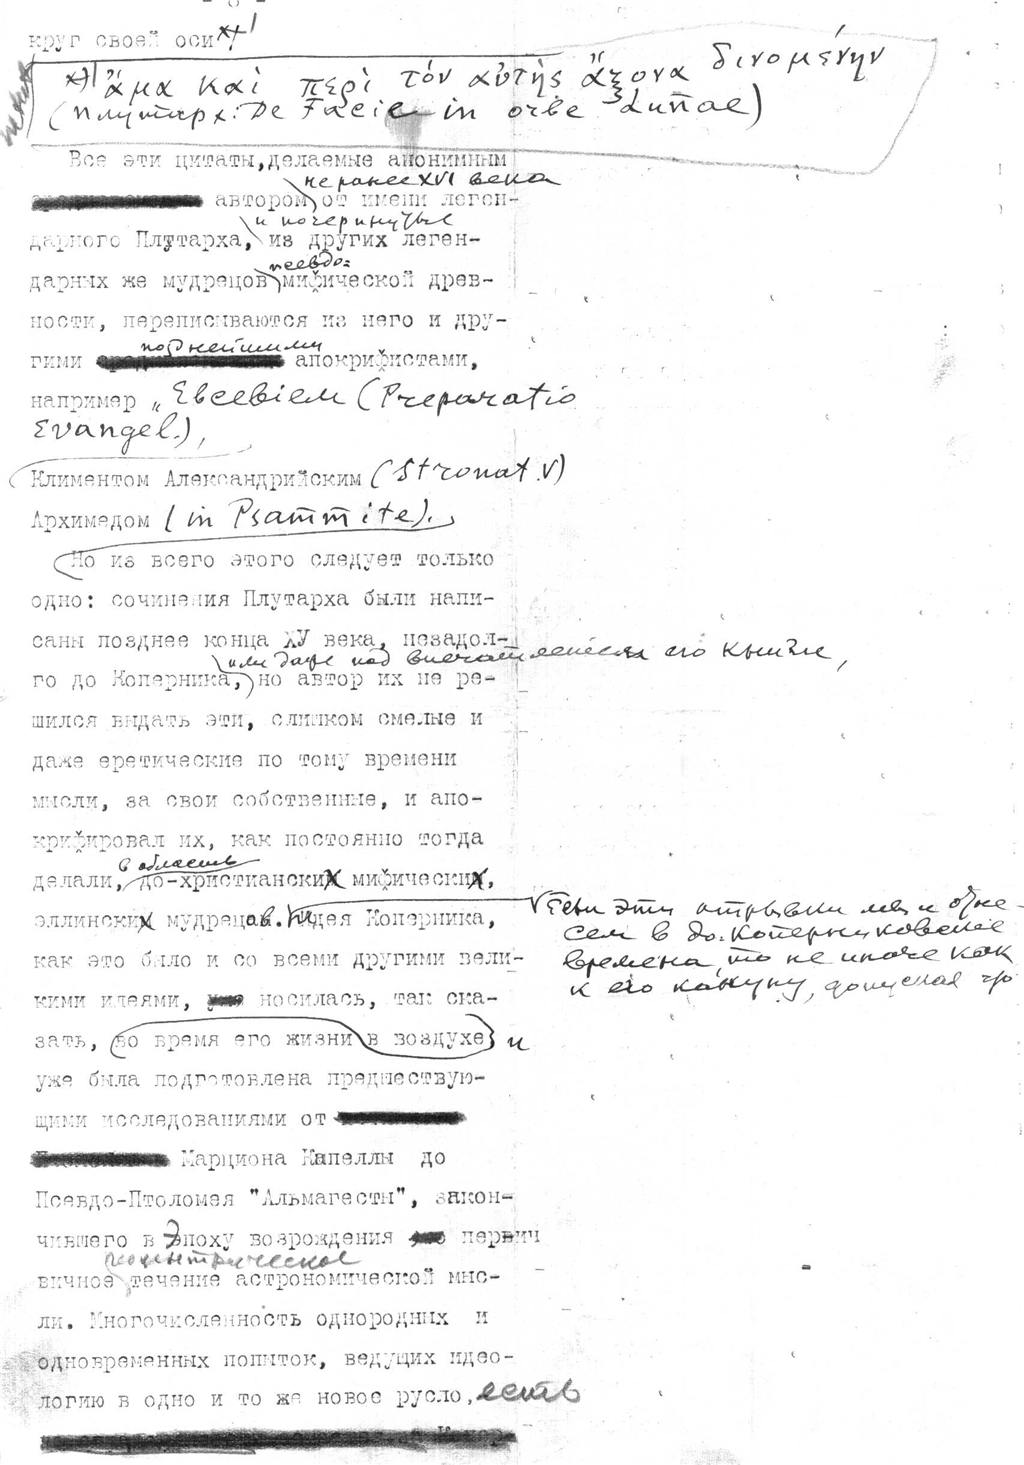 - 8 -
круг своей оси х)
х) ἅμα καὶ περὶ τὸν αὐτῆς ἄξονα δινομένην
(Плутарх: De Facie in orbe Lunae)
Все эти цитаты, делаемые анонимным
не ранее XVI века
автором от имени леген-
и почерпнутые
дарного Плутарха, из других леген-
псевдо-
дарных же мудрецов мифической древ-
ности, переписываются из него и дру-
позднейшими
гими апокрифистами,
например „Евсевием (Preparatio
Evangel.),
Климентом Александрийским (Stromat. V)
Архимедом (in Psammite).
Но из всего этого следует только
одно: сочинения Плутарха были напи-
саны позднее конца ХУ века, незадол-
или даже под впечатлением его книги,
го до Коперника, но автор их не ре-
шился выдать эти, слишком смелые и
даже еретические по тому времени
мысли, за свои собственные, и апо-
крифировал их, как постоянно тогда
в область
делали, до-христианских мифических,
эллинских мудрецов. Идея Коперника,
Если эти отрывки мы и отне-
сем в до-Коперниковские
времена, то не иначе как
к его кануну, допуская что
как это было и со всеми другими вели-
кими идеями, носилась, так ска-
зать, во время его жизни в воздухе и
уже была подготовлена предшествую-
щими исследованиями от
Марциона Капеллы до
Псевдо-Птоломея "Альмагесты", закон-
чившего в Эпоху возрождения первич
геоцентрическое
вичное течение астрономической мыс-
ли. Многочисленность однородных и
одновременных попыток, ведущих идео-
логию в одно и то же новое русло, есть